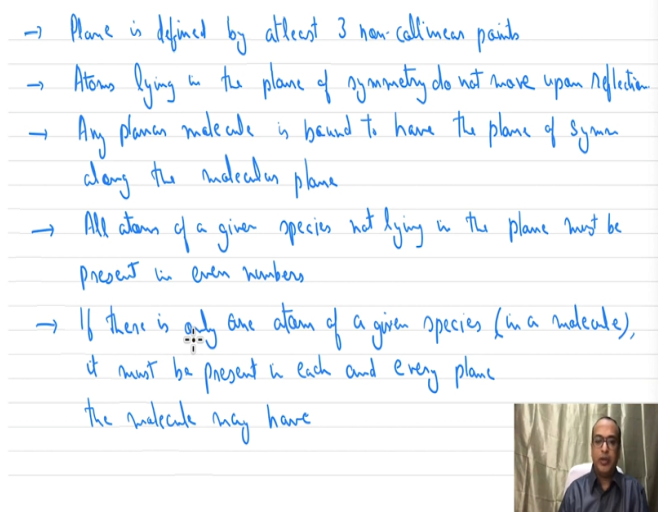 → Plane is defined by atleast 3 non-collinear points
→ Atoms lying in the plane of symmetry do not move upon reflection
→ Any planar molecule is bound to have the plane of symm
along the molecular plane
→ All atoms of a given species not lying in the plane must be
present in even numbers
→ If there is only one atom of a given species (in a molecule),
it must be present in each and every plane
the molecule may have